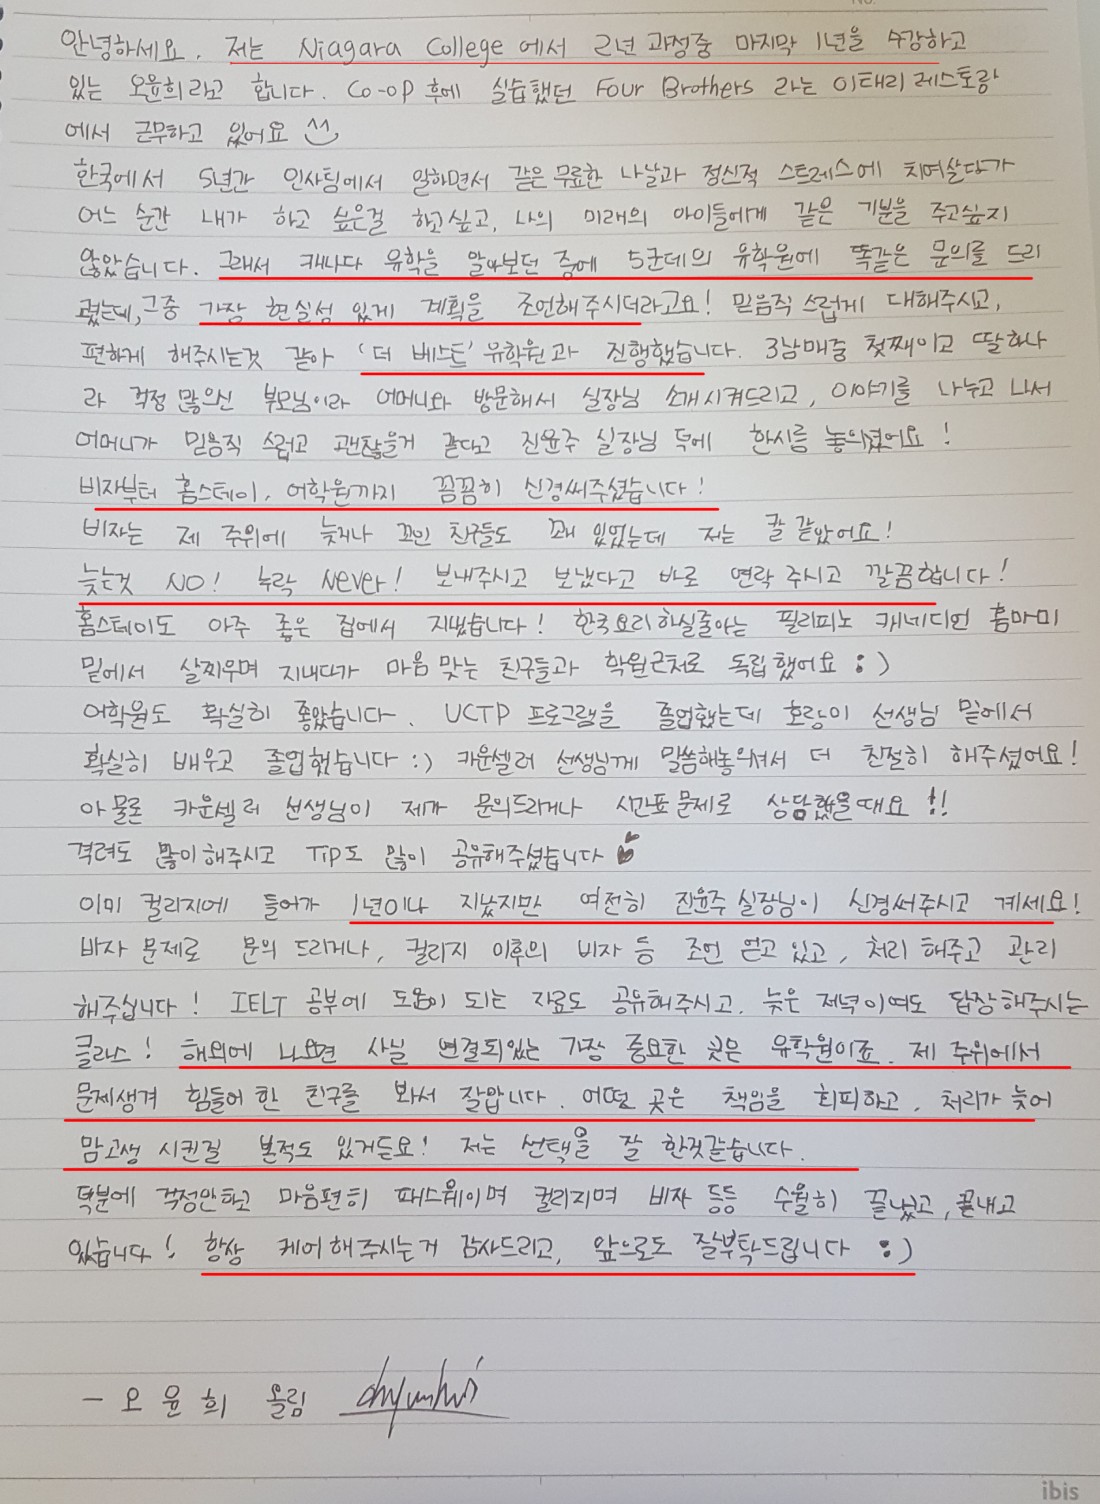 No.
안녕하세요. 저는 Niagara College 에서 2년 과정중 마지막 1년을 수강하고
있는 오윤희라고 합니다. Co-op 후에 실습했던 Four Brothers 라는 이태리 레스토랑
에서 근무하고 있어요 ^^
한국에서 5년간 인사팀에서 일하면서 같은 무료한 나날과 정신적 스트레스에 치여살다가
어느 순간 내가 하고 싶은걸 하고싶고, 나의 미래의 아이들에게 같은 기분을 주고싶지
않았습니다. 그래서 캐나다 유학을 알아보던 중에 5군데의 유학원에 똑같은 문의를 드리
렸는데, 그중 가장 현실성 있게 계획을 조언해주시더라고요! 믿음직 스럽게 대해주시고,
편하게 해주시는것 같아 '더 베스트' 유학원과 진행했습니다. 3남매중 첫째이고 딸하나
라 걱정 많으신 부모님이라 어머니와 방문해서 실장님 소개시켜드리고, 이야기를 나누고 나서
어머니가 믿음직 스럽고 괜찮을거 같다고 진윤주 실장님 덕에 한시름 놓으셨어요!
비자부터 홈스테이, 어학원까지 꼼꼼히 신경써주셨습니다!
비자는 제 주위에 늦거나 꼬인 친구들도 꽤 있었는데 저는 칼 같았어요!
늦는것 NO! 누락 Never! 보내주시고 보냈다고 바로 연락 주시고 깔끔합니다!
홈스테이도 아주 좋은 집에서 지냈습니다! 한국요리하실줄아는 필리피노 캐네디언 홈마미
밑에서 살찌우며 지내다가 마음 맞는 친구들과 학원근처로 독립했어요 :)
어학원도 확실히 좋았습니다. UCTP 프로그램을 졸업했는데 호랑이 선생님 밑에서
확실히 배우고 졸업했습니다 :) 카운셀러 선생님께 말씀해놓으셔서 더 친절히 해주셨어요!
아 물론 카운셀러 선생님이 제가 문의드리거나 시간표 문제로 상담했을때요!!
격려도 많이해주시고 Tip도 많이 공유해주셨습니다
이미 컬리지에 들어가 1년이나 지났지만 여전히 진윤주 실장님이 신경써주시고 계세요!
비자 문제로 문의 드리거나, 컬리지 이후의 비자 등 조언 얻고 있고, 처리 해주고 관리
해주십니다! IELT 공부에 도움이 되는 자료도 공유해주시고. 늦은 저녁이여도 답장해주시는
클라스! 해외에 나오면 사실 연결되있는 가장 중요한 곳은 유학원이죠. 제 주위에서
문제생겨 힘들어 한 친구를 봐서 잘압니다. 어떤 곳은 책임을 회피하고, 처리가 늦어
맘고생 시킨걸 본적도 있거든요! 저는 선택을 잘 한것같습니다.
덕분에 걱정안하고 마음편히 패스웨이며 컬리지며 비자 등등 수월히 끝냈고, 끝내고
있습니다! 항상 케어해주시는거 감사드리고, 앞으로도 잘부탁드립니다 :)
- 오 윤 희 올림
ibis